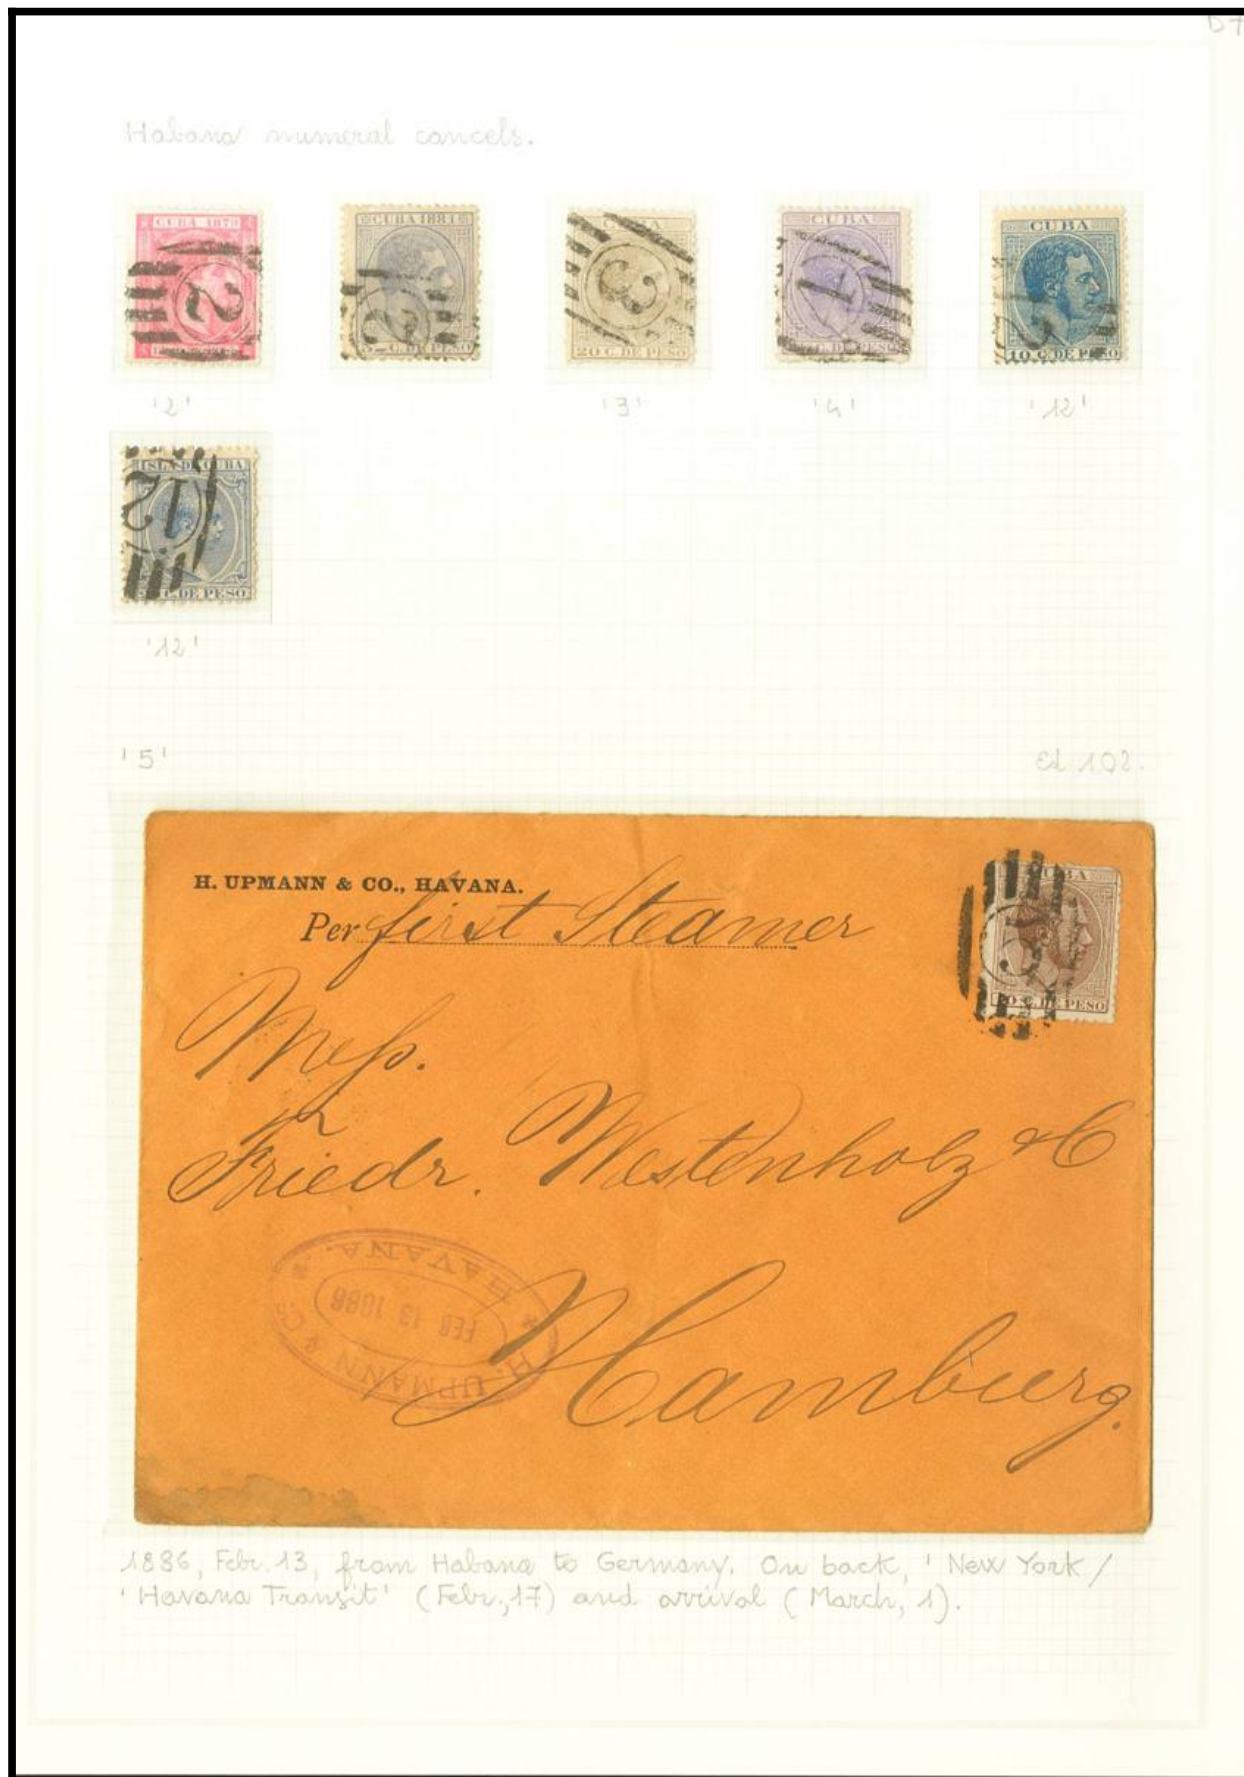 Habana numeral cancels.
CUBA 1879
2
CUBA 1881
C. DE PESO
3
20 C. DE PESO
CUBA
C. DE PESO
CUBA
12
10 C. DE PESO
'2'
'3'
'4'
'12'
ISLA DE CUBA
12
C. DE PESO
'12'
'5'
Ed 102.
H. UPMANN & CO., HAVANA.
Per first Steamer
CUBA
C. DE PESO
Mess.
Friedr. Westenholz & C
Hamburg.
H. UPMANN & Co.
* HAVANA. *
FEB 13 1886
1886, Febr. 13, from Habana to Germany. On back, 'New York /
'Havana Transit' (Febr, 17) and arrival (March, 1).